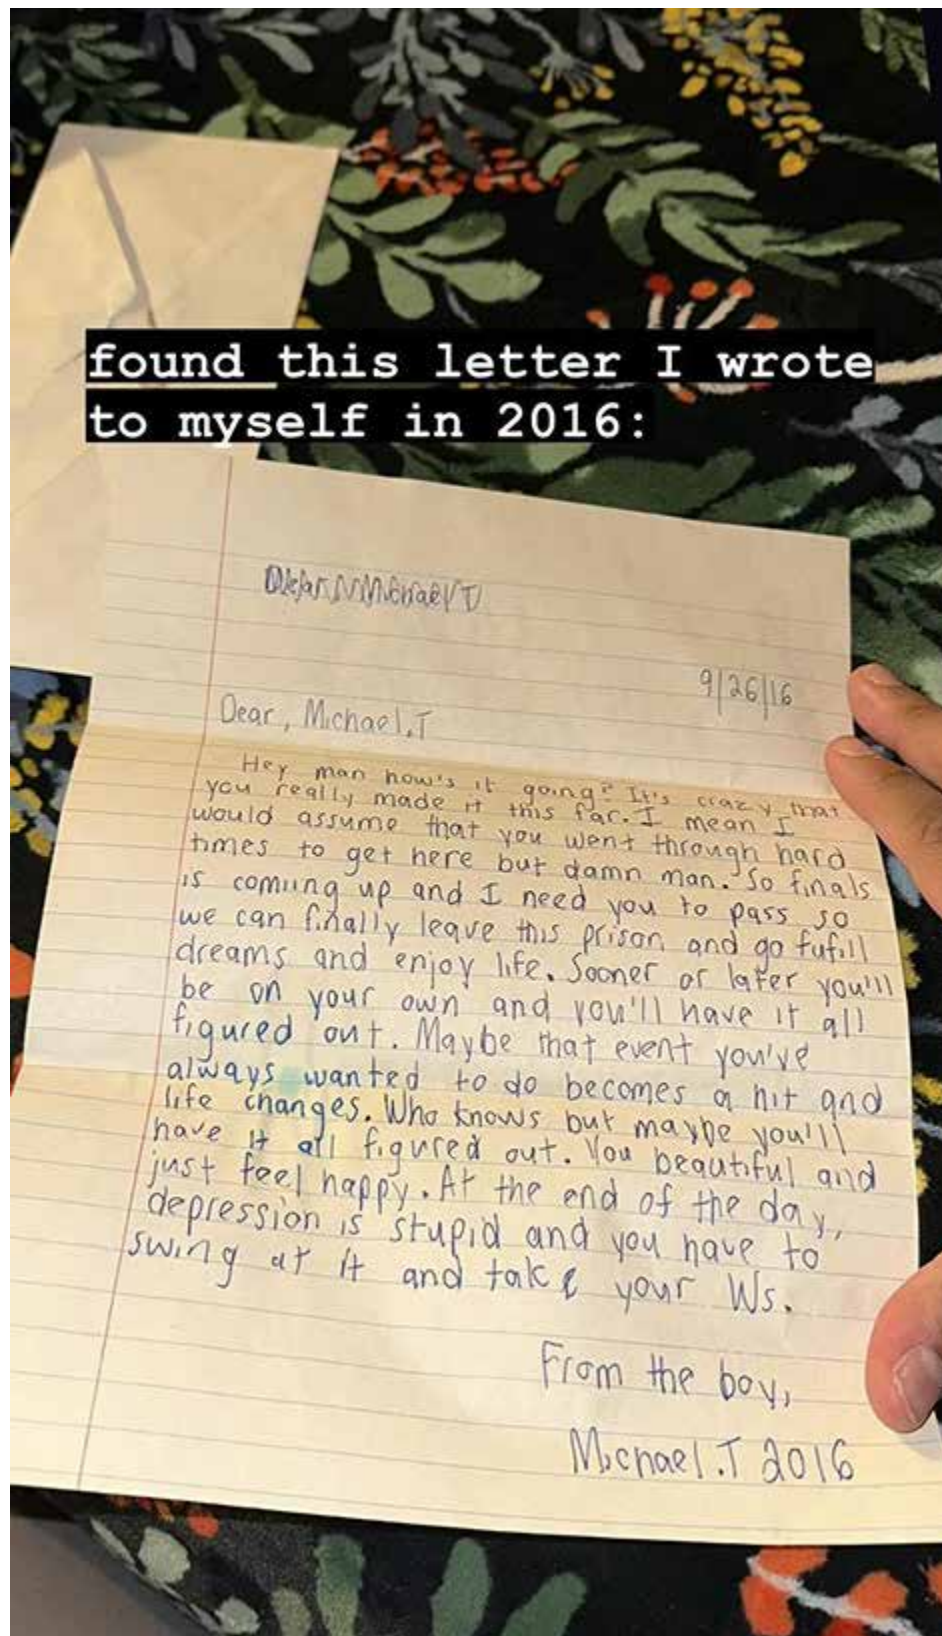 found this letter I wrote
to myself in 2016:
9/26/16
Dear, Michael.T
Hey man how's it going? It's crazy that
you really made it this far. I mean I
would assume that you went through hard
times to get here but damn man. So finals
is comiing up and I need you to pass so
we can finally leave this prison and go fufill
dreams and enjoy life. Sooner or later you'll
be on your own and you'll have it all
figured out. Maybe that event you've
always wanted to do becomes a hit and
life changes. Who knows but maybe you'll
have it all figured out. You beautiful and
just feel happy. At the end of the day,
depression is stupid and you have to
swing at it and take your Ws.
From the boy,
Michael.T 2016